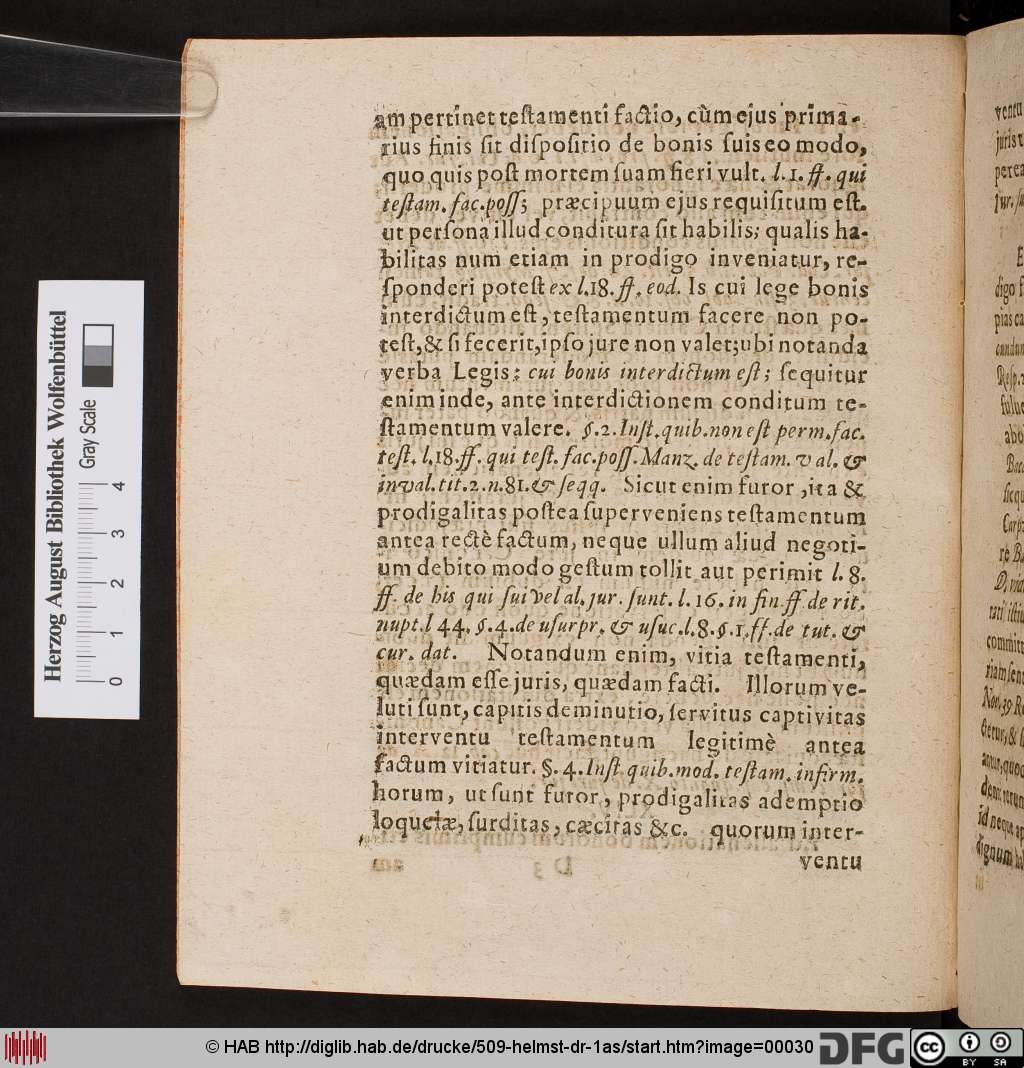 am pertinet teſtamenti factio, cùm ejus prima-
rius finis ſit diſpoſitio de bonis ſuis eo modo,
quo quis poſt mortem ſuam fieri vult. l. 1. ff. qui
teſtam. fac. poſſ; præcipuum ejus requiſitum eſt.
ut perſona illud conditura ſit habilis; qualis ha-
bilitas num etiam in prodigo inveniatur, re-
ſponderi poteſt ex l. 18. ff. eod. Is cui lege bonis
interdictum eſt, teſtamentum facere non po-
teſt, & ſi fecerit, ipſo jure non valet; ubi notanda
verba Legis: cui bonis interdictum eſt; ſequitur
enim inde, ante interdictionem conditum te-
ſtamentum valere. §. 2. Inſt. quib. non eſt perm. fac.
teſt. l. 18. ff. qui teſt. fac. poſſ. Manz. de teſtam. val. &
inval. tit. 2. n. 81. & ſeqq. Sicut enim furor, ita &
prodigalitas poſtea ſuperveniens teſtamentum
antea rectè factum, neque ullum aliud negoti-
um debito modo geſtum tollit aut perimit l. 8.
ff. de his qui ſui vel al. jur. ſunt. l. 16. in fin ff. de rit.
nupt. l 44. §. 4. de uſurpr. & uſuc. l. 8. §. 1. ff. de tut. &
cur. dat. Notandum enim, vitia teſtamenti,
quædam eſſe juris, quædam facti. Illorum ve-
luti ſunt, capitis deminutio, ſervitus captivitas
interventu teſtamentum legitimè antea
factum vitiatur. §. 4. Inſt quib. mod. teſtam. infirm.
horum, ut ſunt furor, prodigalitas ademptio
loquelæ, ſurditas, cæcitas &c. quorum inter-
ventu
Herzog August Bibliothek Wolfenbüttel
Gray Scale
0 1 2 3 4
© HAB http://diglib.hab.de/drucke/509-helmst-dr-1as/start.htm?image=00030
DFG
cc BY SA